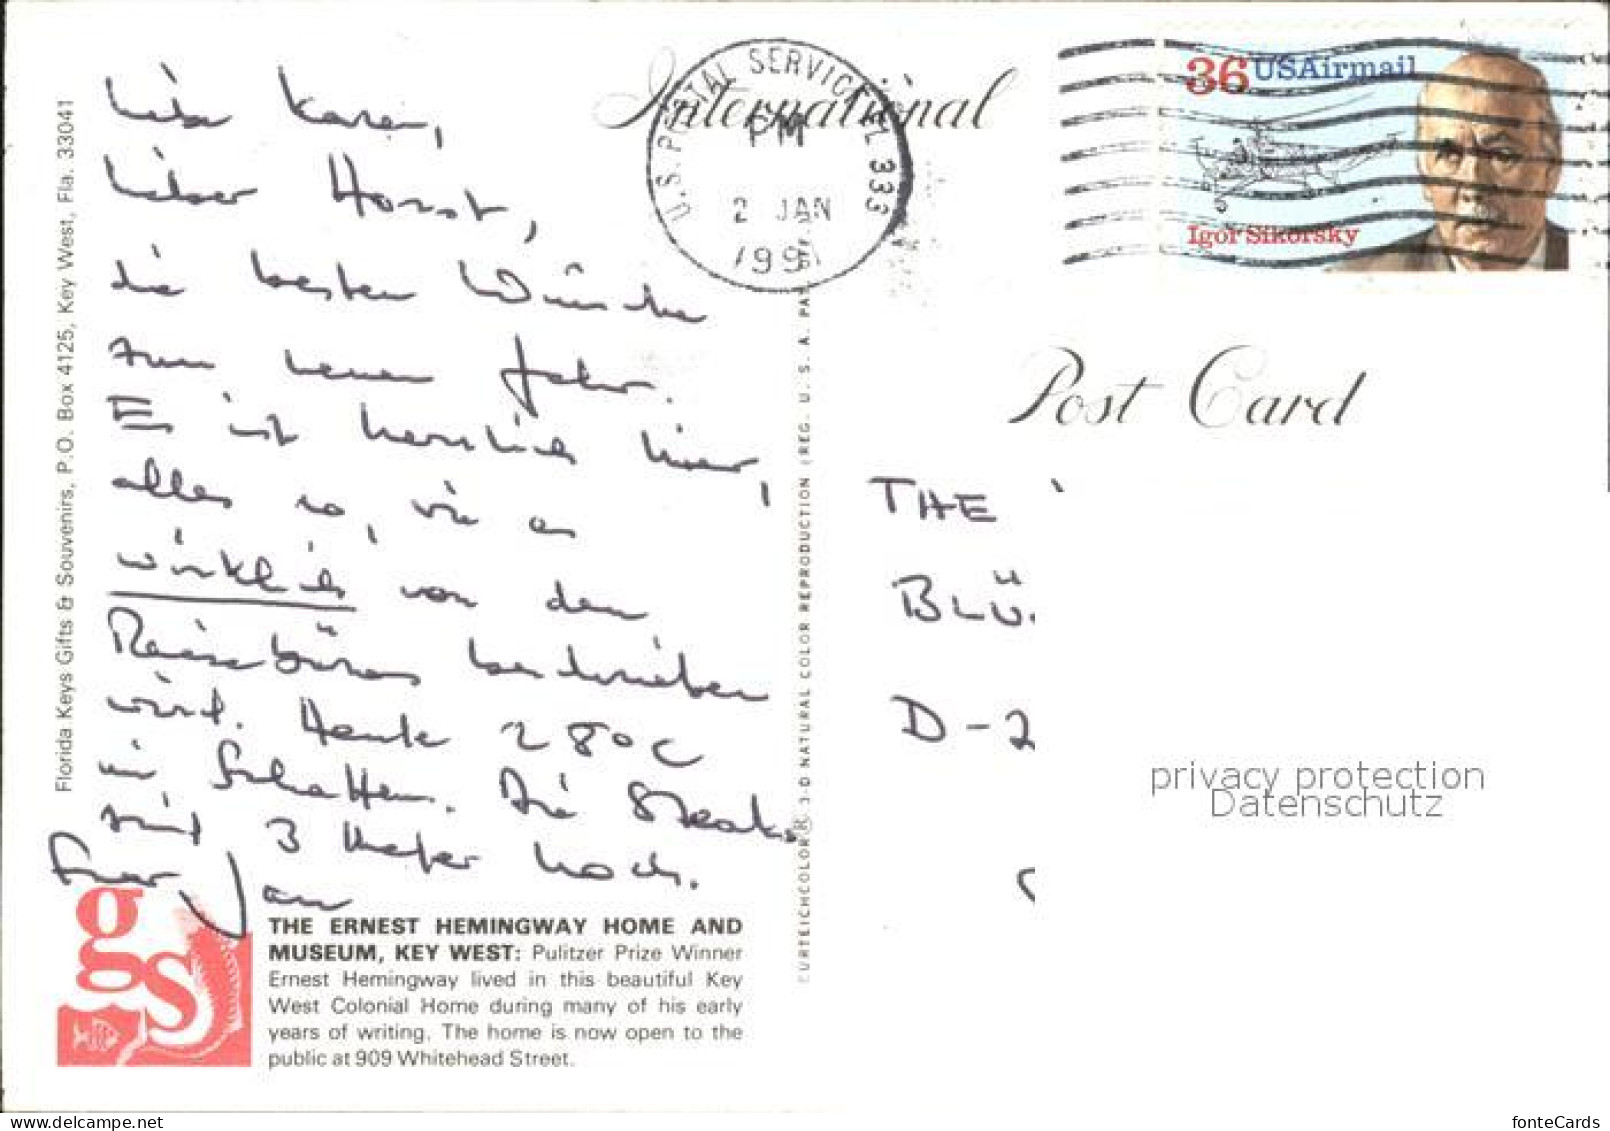 Florida Keys Gifts & Souvenirs, P.O. Box 4125, Key West, Fla. 33041
Liebe Karen,
lieber Horst,
die besten Wünsche
zum neuen Jahr.
Es ist herrlich hier,
alles so, wie es
wirklich von den
Reisebüros beschrieben
wird. Heute 28°C
im Schatten. Die Steaks
sind 3 Meter hoch.
Euer Jan
gs
THE ERNEST HEMINGWAY HOME AND
MUSEUM, KEY WEST: Pulitzer Prize Winner
Ernest Hemingway lived in this beautiful Key
West Colonial Home during many of his early
years of writing. The home is now open to the
public at 909 Whitehead Street.
CURTEICHCOLOR® 3-D NATURAL COLOR REPRODUCTION (REG. U. S. A. PAT.
International
U.S. POSTAL SERVICE FL 333
PM
2 JAN
1991
36 USAirmail
Igor Sikorsky
Post Card
THE
BLÜ
D-2
privacy protection
Datenschutz
fonteCards